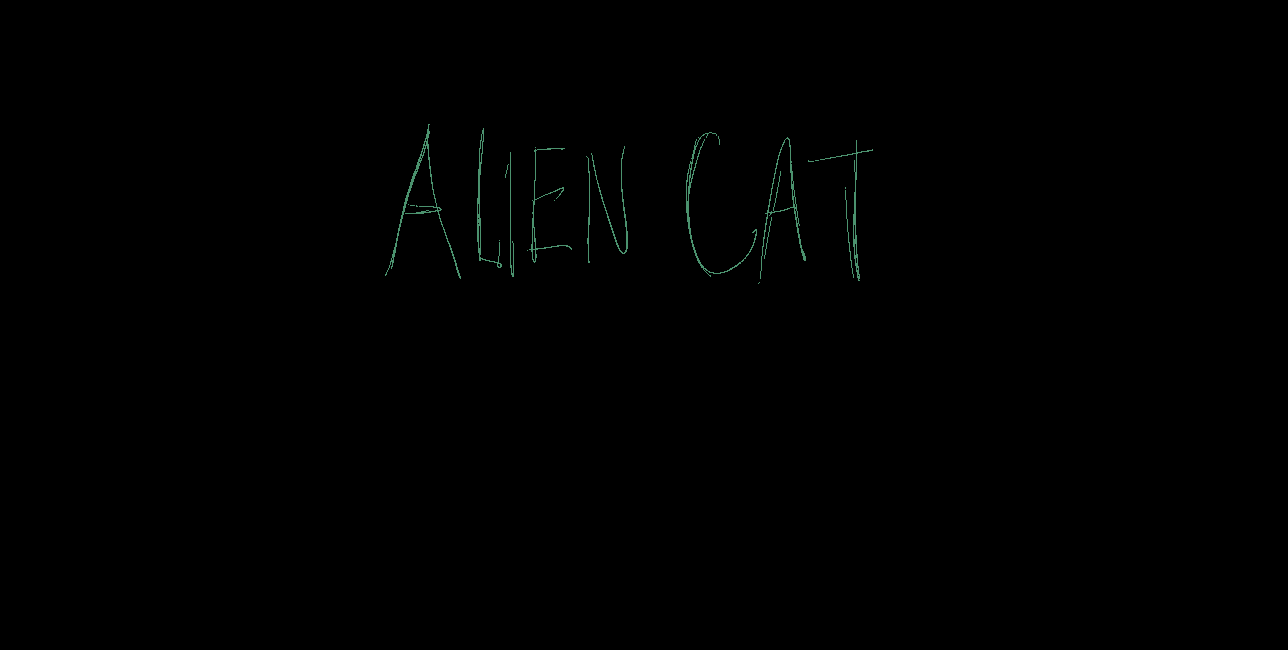 ALIEN CAT